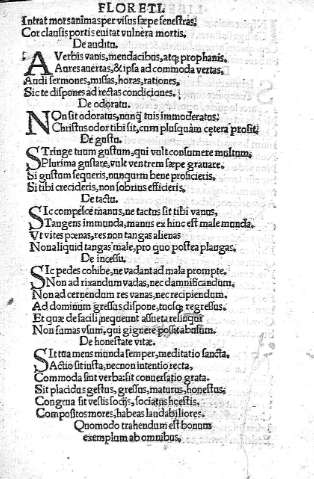 FLORETI.
Intrat mors animas per visus sæpe fenestras,
Cor clausis portis euitat vulnera mortis.
De auditu.
A Verbis vanis, mendacibus, atq; prophanis.
Aures auertas, & ipsa ad commoda vertas,
Audi sermones, missas, horas, rationes,
Sic te dispones ad rectas condiciones.
De odoratu.
NOn sit odoratus, nunq̃ tuis immoderatus:
Christus odor tibi sit, cum plusquàm cetera prosit.
De gustu.
STringe tuum gustum, qui vult consumere multum,
Plurima gustare, vult ventrem sæpe grauare.
Si gustum sequeris, nunquàm bene proficieris,
Si tibi credideris, non sobrius efficieris.
De tactu.
SIc compésce manus, ne tactus sit tibi vanus,
Tangens immunda, manus ex hinc est male munda.
Vt vites pœnas, res non tangas alienas
Non aliquid tangas male, pro quo postea plangas.
De incessu.
SIc pedes cohibe, ne vadant ad mala prompte.
Non ad rixandum vadas, nec damnificandum,
Non ad cernendum res vanas, nec recipiendum.
Ad dominum gressus dispone, tuosq; regressus.
Et quæ de facili nequeunt assueta relinqui
Non sumas vsum, qui gignere possit abusum.
De honestate vitæ.
SIt tua mens munda semper, meditatio sancta,
Actio sit iusta, necnon intentio recta,
Commoda sint verba: sit conuersatio grata.
Sit placidus gestus, gressus, maturus, honestus,
Congrua sit vestis socijs, sociatus
Compositos mores, habeas laudabiliores.
Quomodo trahendum est bonum
exemplum ab omnibus.